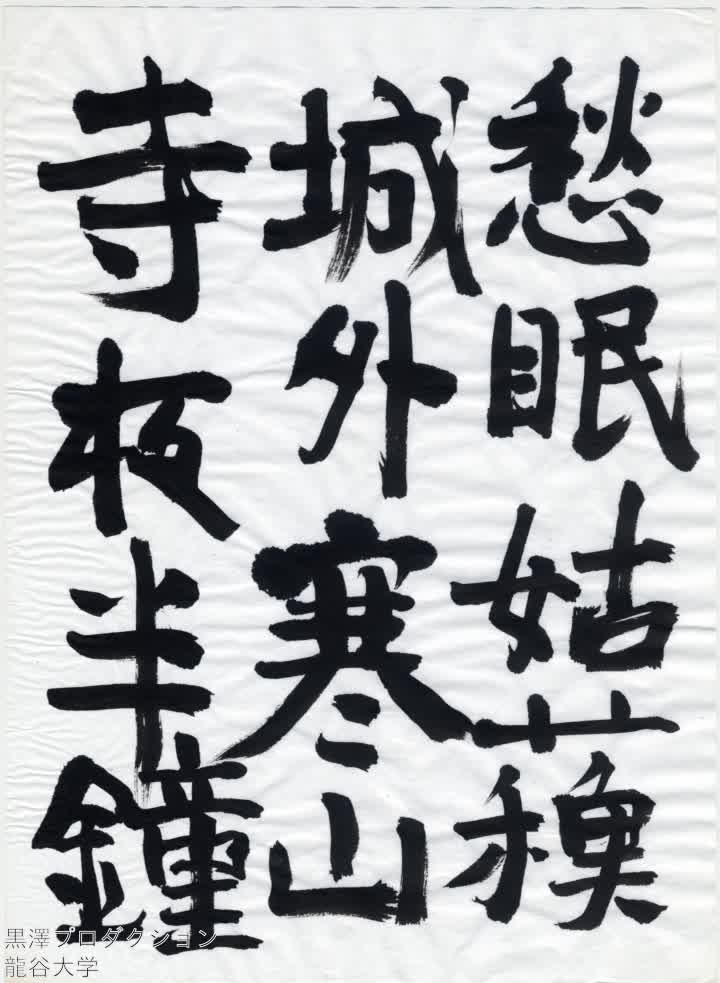 愁眠姑蘓
城外寒山
寺半鐘
黒澤プロダクション
龍谷大学